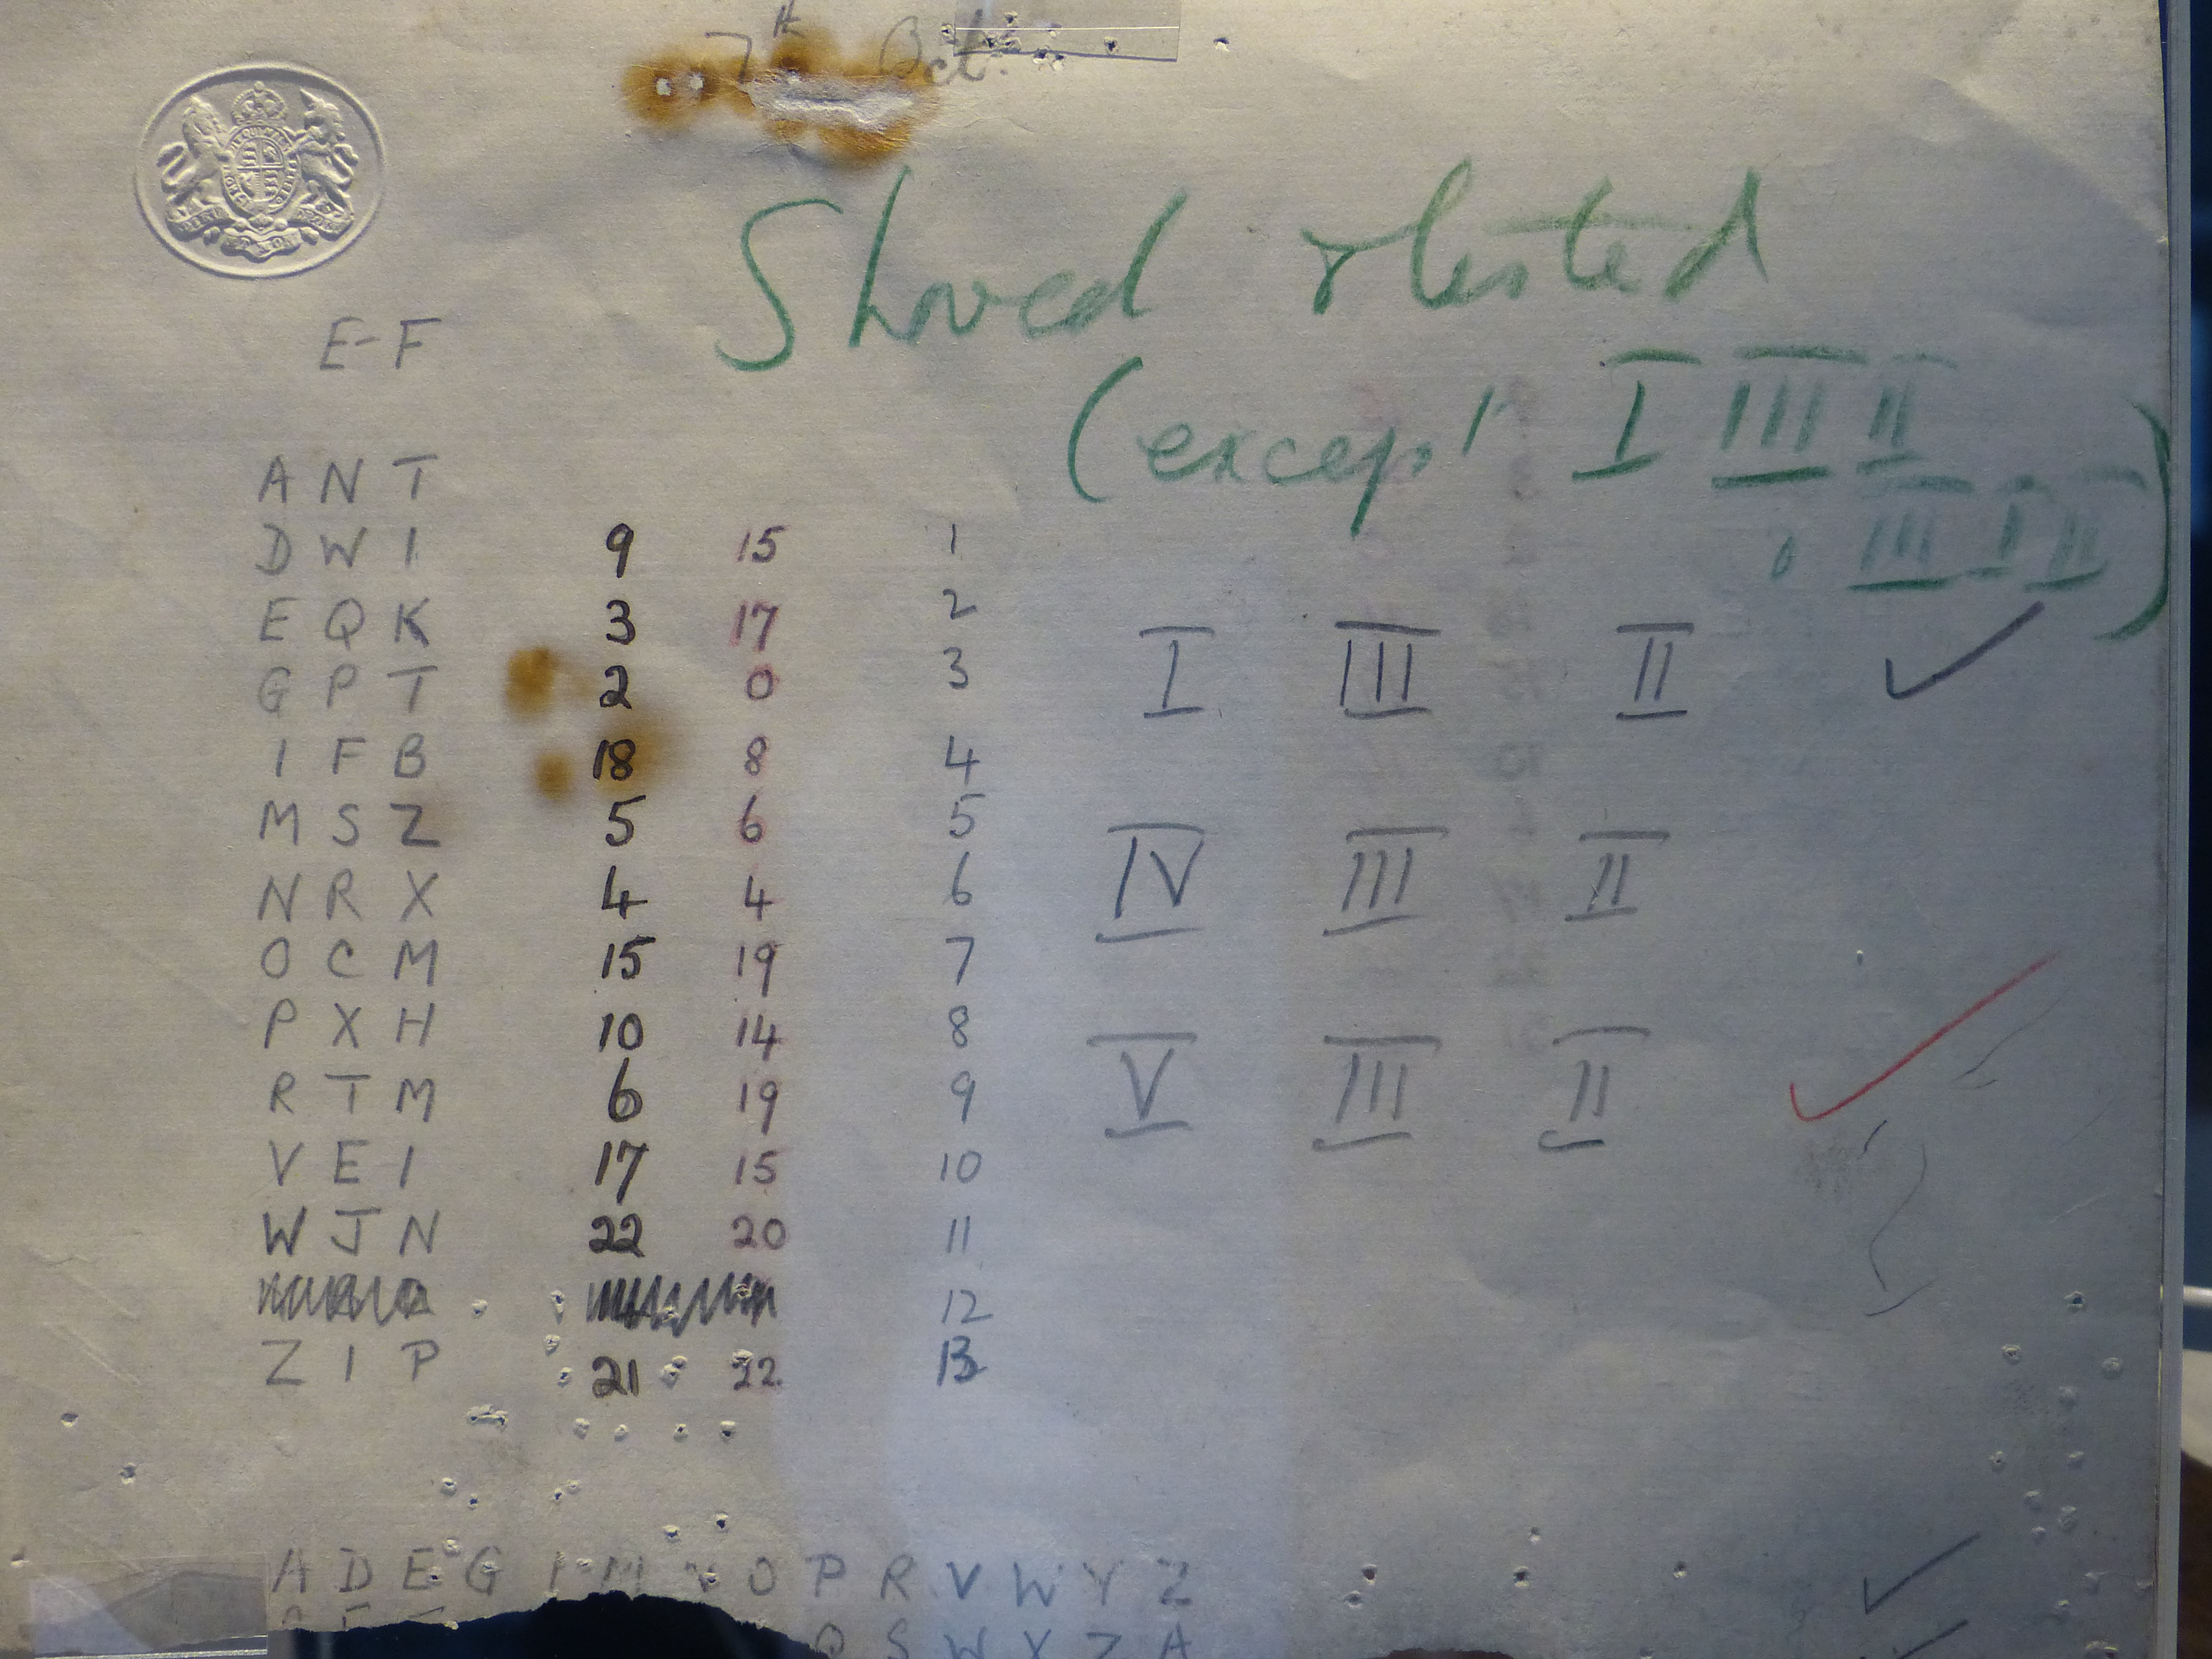 7th Oct.
Shoved & tested
E-F
(except I III II
III I II)
A N T
D W I 9 15 1
E Q K 3 17 2
G P T 2 0 3 I III II ✓
I F B 18 8 4
M S Z 5 6 5
N R X 4 4 6 IV III II
O C M 15 19 7
P X H 10 14 8
R T M 6 19 9 V III II ✓
V E I 17 15 10
W J N 22 20 11
12
Z I P 21 22 13
A D E G I M N O P R V W Y Z ✓
Q S W X Z A